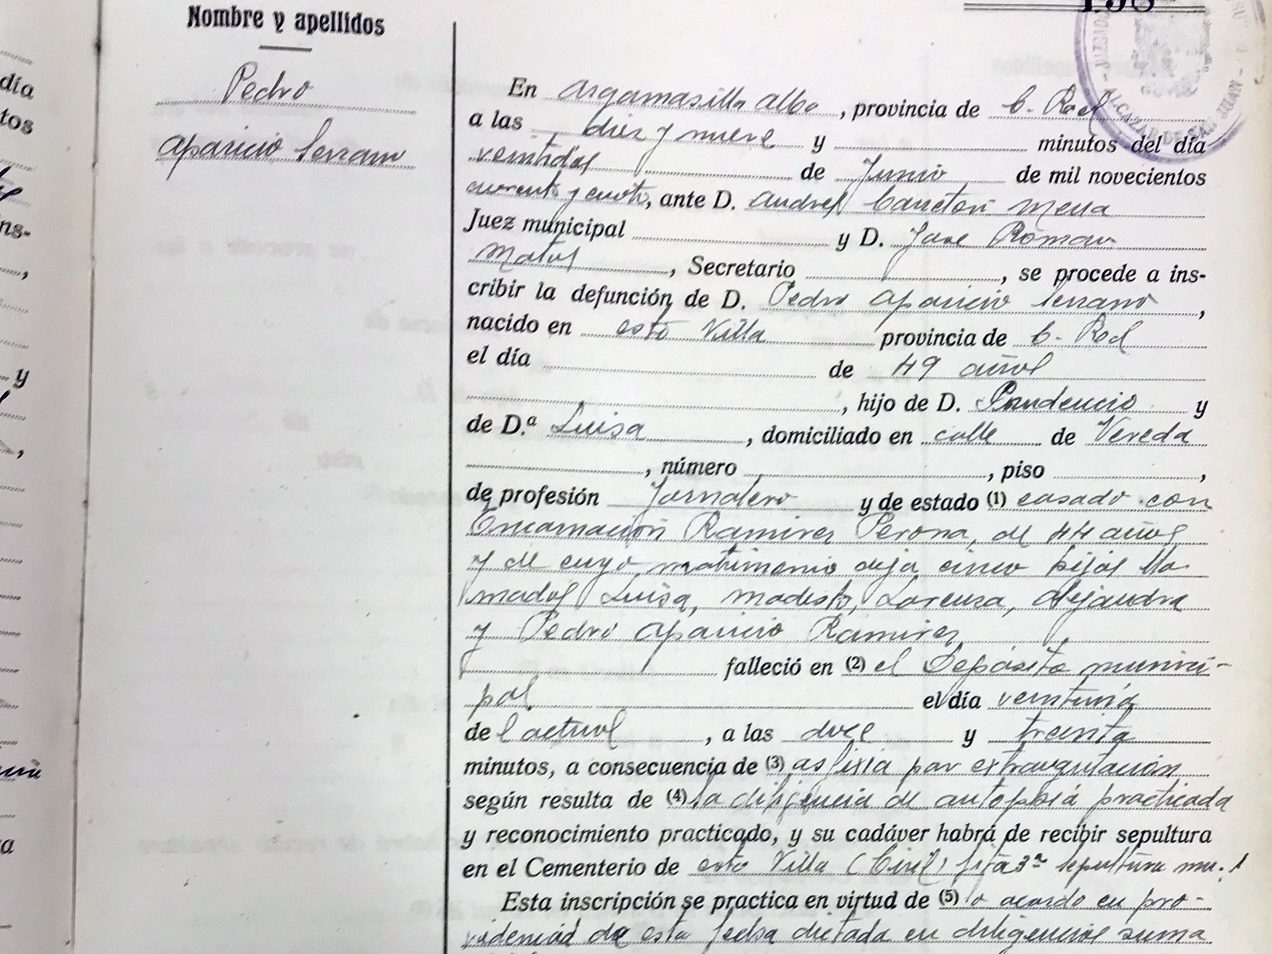 Nombre y apellidos
Pedro
Aparicio Serrano
En Argamasilla Alba, provincia de C. Real
a las diez y nueve y minutos del día
veintidos de Junio de mil novecientos
cuarenta y cuatro, ante D. Andres Canton Mena
Juez municipal y D. Jose Roman
Matos, Secretario, se procede a ins-
cribir la defunción de D. Pedro Aparicio Serrano,
nacido en esta Villa provincia de C. Real
el día de 49 años
, hijo de D. Prudencio y
de D.ª Luisa, domiciliado en calle de Vereda
, número, piso,
de profesión Jornalero y de estado (1) casado con
Encarnación Ramirez Perona, de 44 años
y de cuyo matrimonio deja cinco hijos lla-
mados Luisa, Modesto, Lorenza, Alejandra
y Pedro Aparicio Ramirez
falleció en (2) el Depósito munici-
pal el día veintiuno
del actual, a las doce y treinta
minutos, a consecuencia de (3) asfixia por extrangulación
según resulta de (4) la diligencia de autopsia practicada
y reconocimiento practicado, y su cadáver habrá de recibir sepultura
en el Cementerio de esta Villa (Civil) fila 3ª sepultura
Esta inscripción se practica en virtud de (5) lo acordo en pro-
videncia de esta fecha dictada en diligencias suma
JUZGADO
ALCAZAR DE SAN JUAN
día
tos
ins-
y